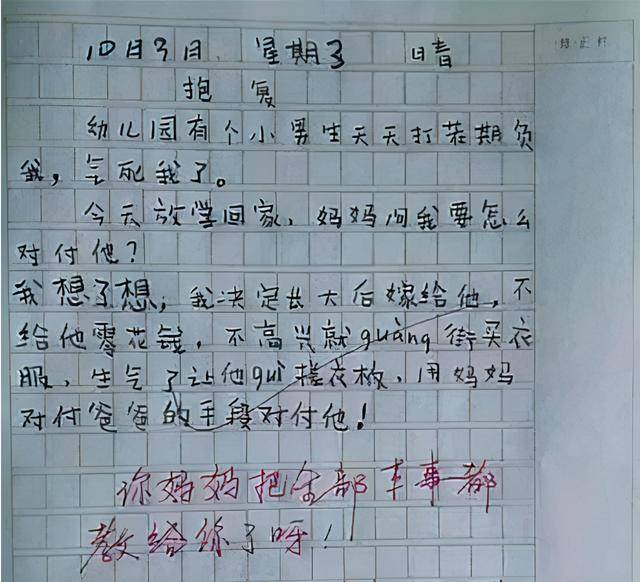 10月9日 星期3 晴
抱复
幼儿园有个小男生天天打茬期负
我，气死我了。
今天放学回家，妈妈问我要怎么
对付他？
我想了想，我决定长大后嫁给他，不
给他零花钱，不高兴就guàng街买衣
服，生气了让他guì搓衣板，用妈妈
对付爸爸的手段对付他！
你妈妈把全部本事都
教给你了呀！